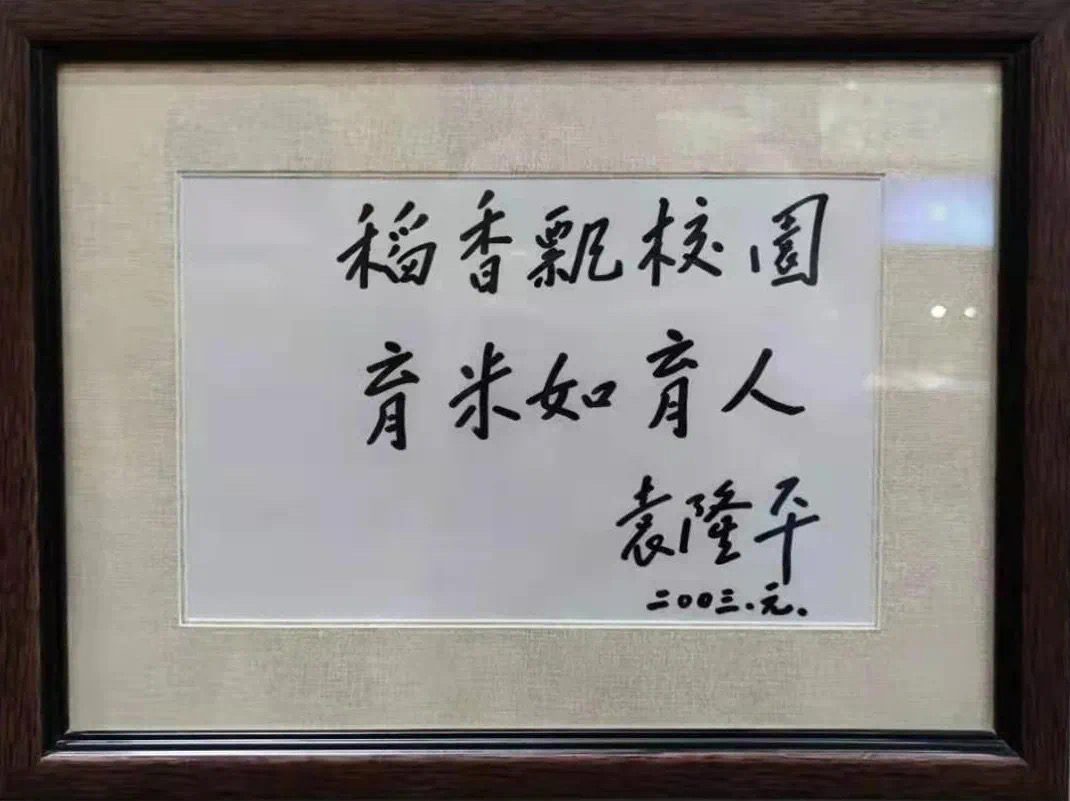 稻香飘校園
育米如育人
袁隆平
二00三.元.